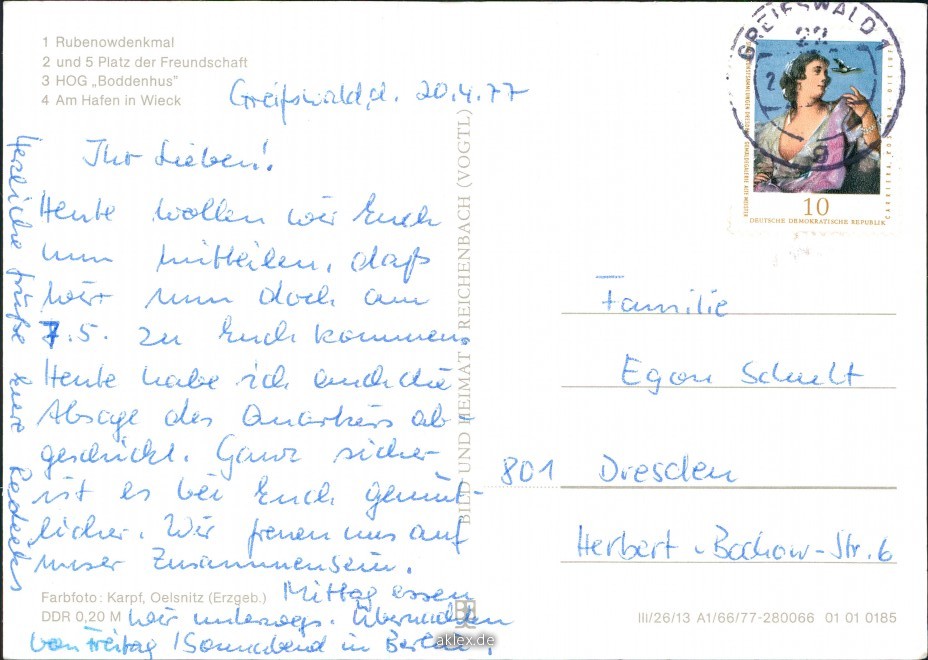 1 Rubenowdenkmal
2 und 5 Platz der Freundschaft
3 HOG „Boddenhus"
4 Am Hafen in Wieck
Greifswald, d. 20.4.77
Ihr Lieben!
Heute wollen wir Euch
nun mitteilen, daß
wir nun doch am
7.5. zu Euch kommen.
Heute habe ich auch die
Absage des Quartiers ab-
geschickt. Ganz sicher
ist es bei Euch gemüt-
licher. Wir freuen uns auf
unser Zusammensein.
Mittag essen
wir unterwegs. Übernachten
von Freitag / Sonnabend in Berlin.
Herzliche Grüße Eure
Farbfoto: Karpf, Oelsnitz (Erzgeb.)
DDR 0,20 M
BILD UND HEIMAT REICHENBACH (VOGTL)
GREIFSWALD 1
10
DEUTSCHE DEMOKRATISCHE REPUBLIK
Familie
Egon Schult
801 Dresden
Herbert-Bochow-Str. 6
III/26/13 A1/66/77-280066 01 01 0185
aklex.de